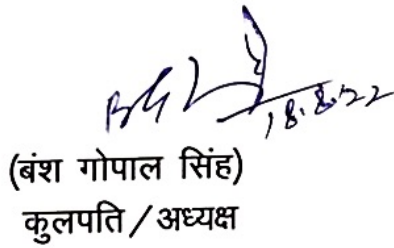 18.8.22
(बंश गोपाल सिंह)
कुलपति / अध्यक्ष